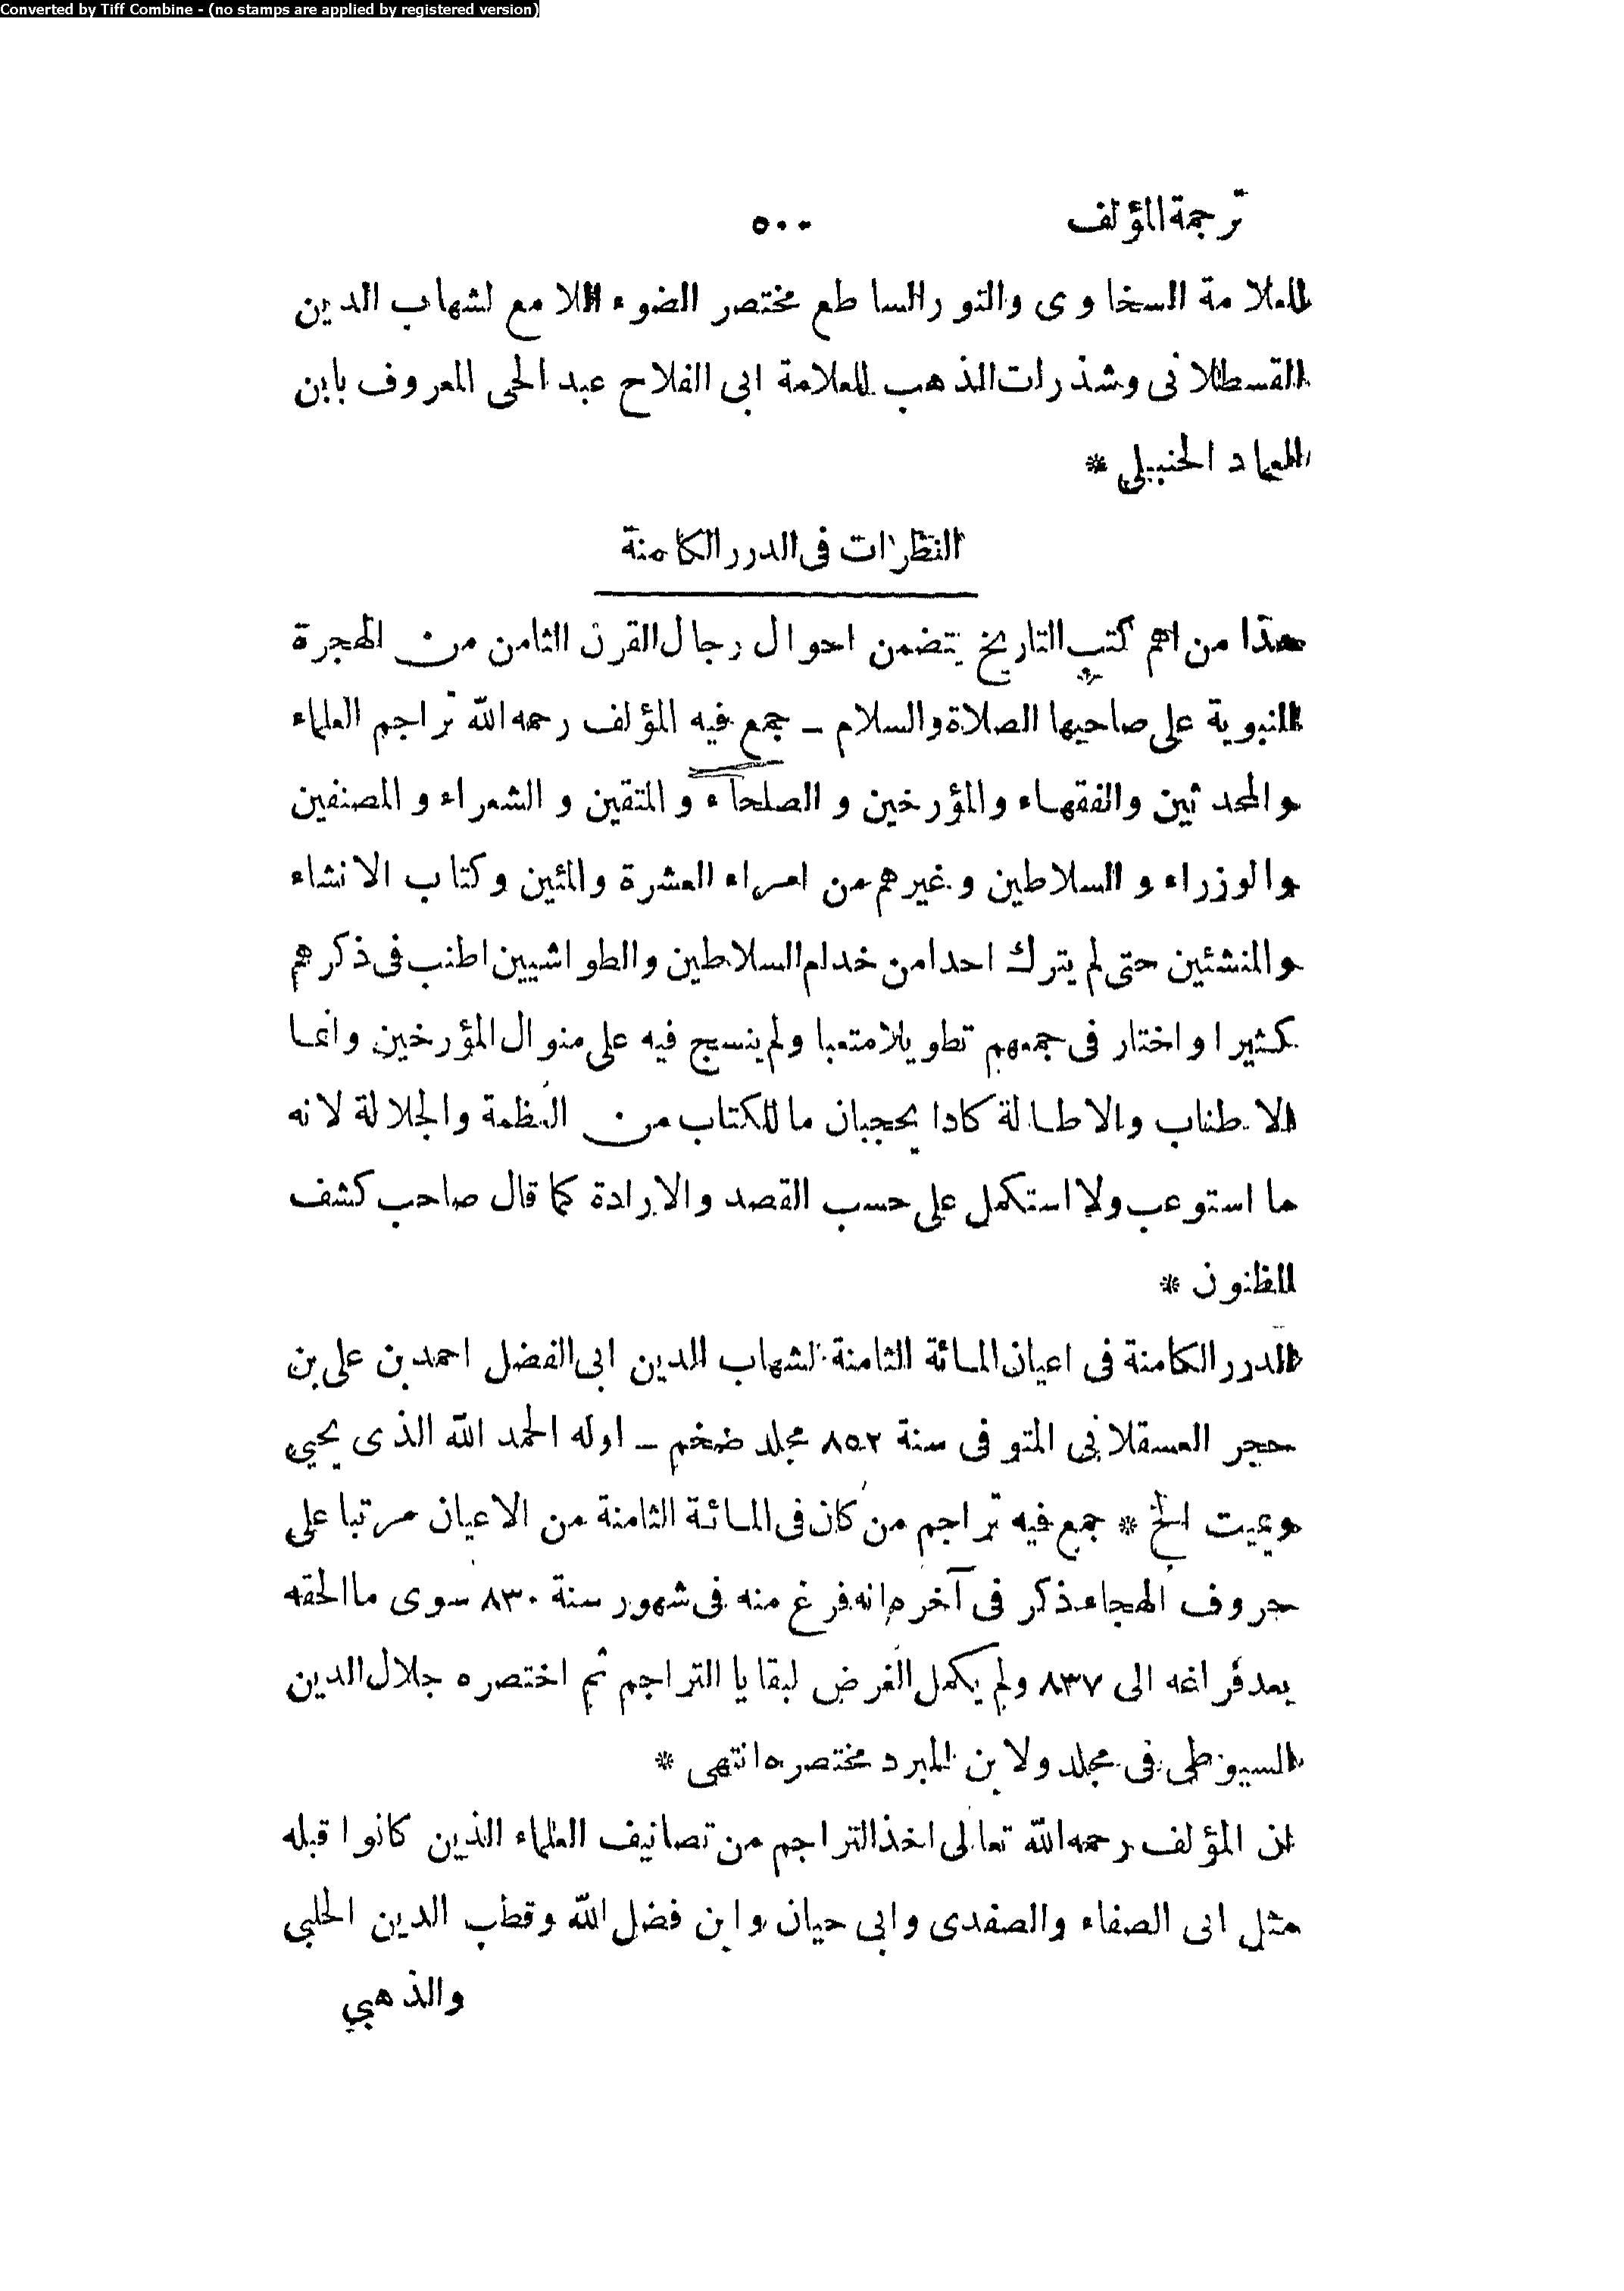 Converted by Tiff Combine - (no stamps are applied by registered version)
ترجمة المؤلف ٥٠٠
للعلامة السخاوى والنور الساطع مختصر الضوء اللامع لشهاب الدين
القسطلانى وشذرات الذهب للعلامة ابى الفلاح عبد الحى المعروف بابن
العماد الحنبلى *
النظرات فى الدرر الكامنة
هذا من اهم كتب التاريخ يتضمن احوال رجال القرن الثامن من الهجرة
النبوية على صاحبها الصلاة والسلام – جمع فيه المؤلف رحمه الله تراجم العلماء
والمحدثين والفقهاء والمؤرخين و الصلحاء و المتقين و الشعراء و المصنفين
والوزراء و السلاطين و غيرهم من امراء العشرة والمئين وكتاب الانشاء
والمنشئين حتى لم يترك احدا من خدام السلاطين والطواشيين اطنب فى ذكرهم
كثيرا واختار فى جمعهم تطويلا متعبا ولم ينسج فيه على منوال المؤرخين وانما
الاطناب والاطالة كادا يحجبان ما للكتاب من العظمة والجلالة لانه
ما استوعب ولا استكمل على حسب القصد والارادة كما قال صاحب كشف
الظنون *
الدرر الكامنة فى اعيان المائة الثامنة لشهاب الدين ابى الفضل احمد بن على بن
حجر العسقلانى المتوفى سنة ٨٥٢ مجلد ضخم – اوله الحمد الله الذى يحيى
ويميت الخ * جمع فيه تراجم من كان فى المائة الثامنة من الاعيان مرتبا على
حروف الهجاء ذكر فى آخره انه فرغ منه فى شهور سنة ٨٣٠ سوى ما الحقه
بعد فراغه الى ٨٣٧ ولم يكمل الغرض لبقايا التراجم ثم اختصره جلال الدين
السيوطى فى مجلد ولابن المبرد مختصره انتهى *
ان المؤلف رحمه الله تعالى اخذ التراجم من تصانيف العلماء الذين كانوا قبله
مثل ابى الصفاء والصفدى وابى حيان وابن فضل الله وقطب الدين الحلبى
والذهبي